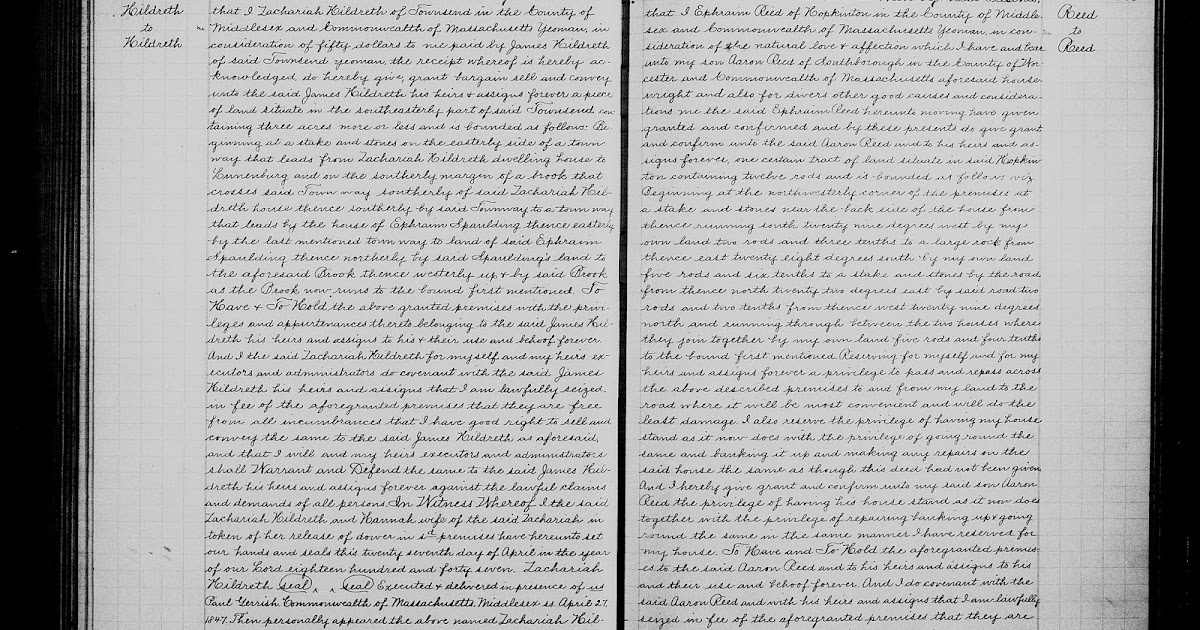 Hildreth
to
Hildreth
that I Zachariah Hildreth of Townsend in the County of
Middlesex and Commonwealth of Massachusetts Yeoman, in
consideration of fifty dollars to me paid by James Hildreth
of said Townsend yeoman, the receipt whereof is hereby ac-
knowledged, do hereby give, grant bargain sell and convey
unto the said James Hildreth his heirs & assigns forever a piece
of land situate in the southeasterly part of said Townsend con
taining three acres more or less and is bounded as follows: Be
ginning at a stake and stones on the easterly side of a town
way that leads from Zachariah Hildreth dwelling house to
Lunenburg and on the southerly margin of a brook that
crosses said Town way southerly of said Zachariah Hil-
dreth house thence southerly by said Townway to a town way
that leads by the house of Ephraim Spaulding thence easterly
by the last mentioned town way to land of said Ephraim
Spaulding thence northerly by said Spaulding's land to
the aforesaid Brook thence westerly up & by said Brook
as the Brook now runs to the bound first mentioned. To
Have & To Hold the above granted premises with the privi-
leges and appurtenances thereto belonging to the said James Hil-
dreth his heirs and assigns to his & their use and behoof forever.
And I the said Zachariah Hildreth for myself and my heirs ex-
ecutors and administrators do covenant with the said James
Hildreth his heirs and assigns that I am lawfully seized
in fee of the aforegranted premises that they are free
from all incumbrances that I have good right to sell and
convey the same to the said James Hildreth as aforesaid,
and that I will and my heirs executors and administrators
shall Warrant and Defend the same to the said James Hil-
dreth his heirs and assigns forever against the lawful claims
and demands of all persons. In Witness Whereof I the said
Zachariah Hildreth and Hannah wife of the said Zachariah in
token of her release of dower in sd premises have hereunto set
our hands and seals this twenty seventh day of April in the year
of our Lord eighteen hundred and forty seven. Zachariah
Hildreth seal, , seal Executed & delivered in presence of us
Paul Gerrish Commonwealth of Massachusetts. Middlesex ss. April 27.
1847. Then personally appeared the above named Zachariah Hil-
that I Ephraim Reed of Hopkinton in the County of Middle-
sex and Commonwealth of Massachusetts Yeoman, in con-
sideration of the natural love & affection which I have and bear
unto my son Aaron Reed of Southborough in the County of Wor
cester and Commonwealth of Massachusetts aforesaid house
wright and also for divers other good causes and considera-
tions me the said Ephraim Reed hereunto moving have given
granted and confirmed and by these presents do give grant
and confirm unto the said Aaron Reed and to his heirs and as-
signs forever, one certain tract of land situate in said Hopkin
ton containing twelve rods and is bounded as follows viz
Beginning at the northwesterly corner of the premises at
a stake and stones near the back side of the house from
thence running south twenty nine degrees west by my
own land two rods and three tenths to a large rock from
thence east twenty eight degrees south by my own land
five rods and six tenths to a stake and stones by the road
from thence north twenty two degrees east by said road two
rods and two tenths from thence west twenty nine degrees
north and running through between the two houses where
they join together by my own land five rods and four tenths
to the bound first mentioned. Reserving for myself and for my
heirs and assigns forever a privilege to pass and repass across
the above described premises to and from my land to the
road where it will be most convenient and will do the
least damage. I also reserve the privilege of having my house
stand as it now does with the privilege of going round the
same and banking it up and making any repairs on the
said house the same as though this deed had not been given
And I hereby give grant and confirm unto my said son Aaron
Reed the privilege of having his house stand as it now does
together with the privilege of repairing banking up & going
round the same in the same manner I have reserved for
my house. To Have and To Hold the aforegranted premis-
es to the said Aaron Reed and to his heirs and assigns to his
and their use and behoof forever. And I do covenant with the
said Aaron Reed and with his heirs and assigns that I am lawfully
seized in fee of the aforegranted premises that they are
Reed
to
Reed